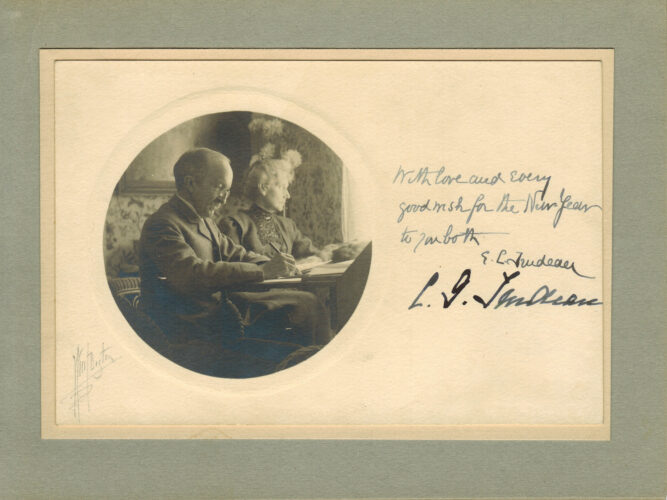 With love and every
good wish for the New Year
to you both
E. L. Trudeau
C. G. Trudeau